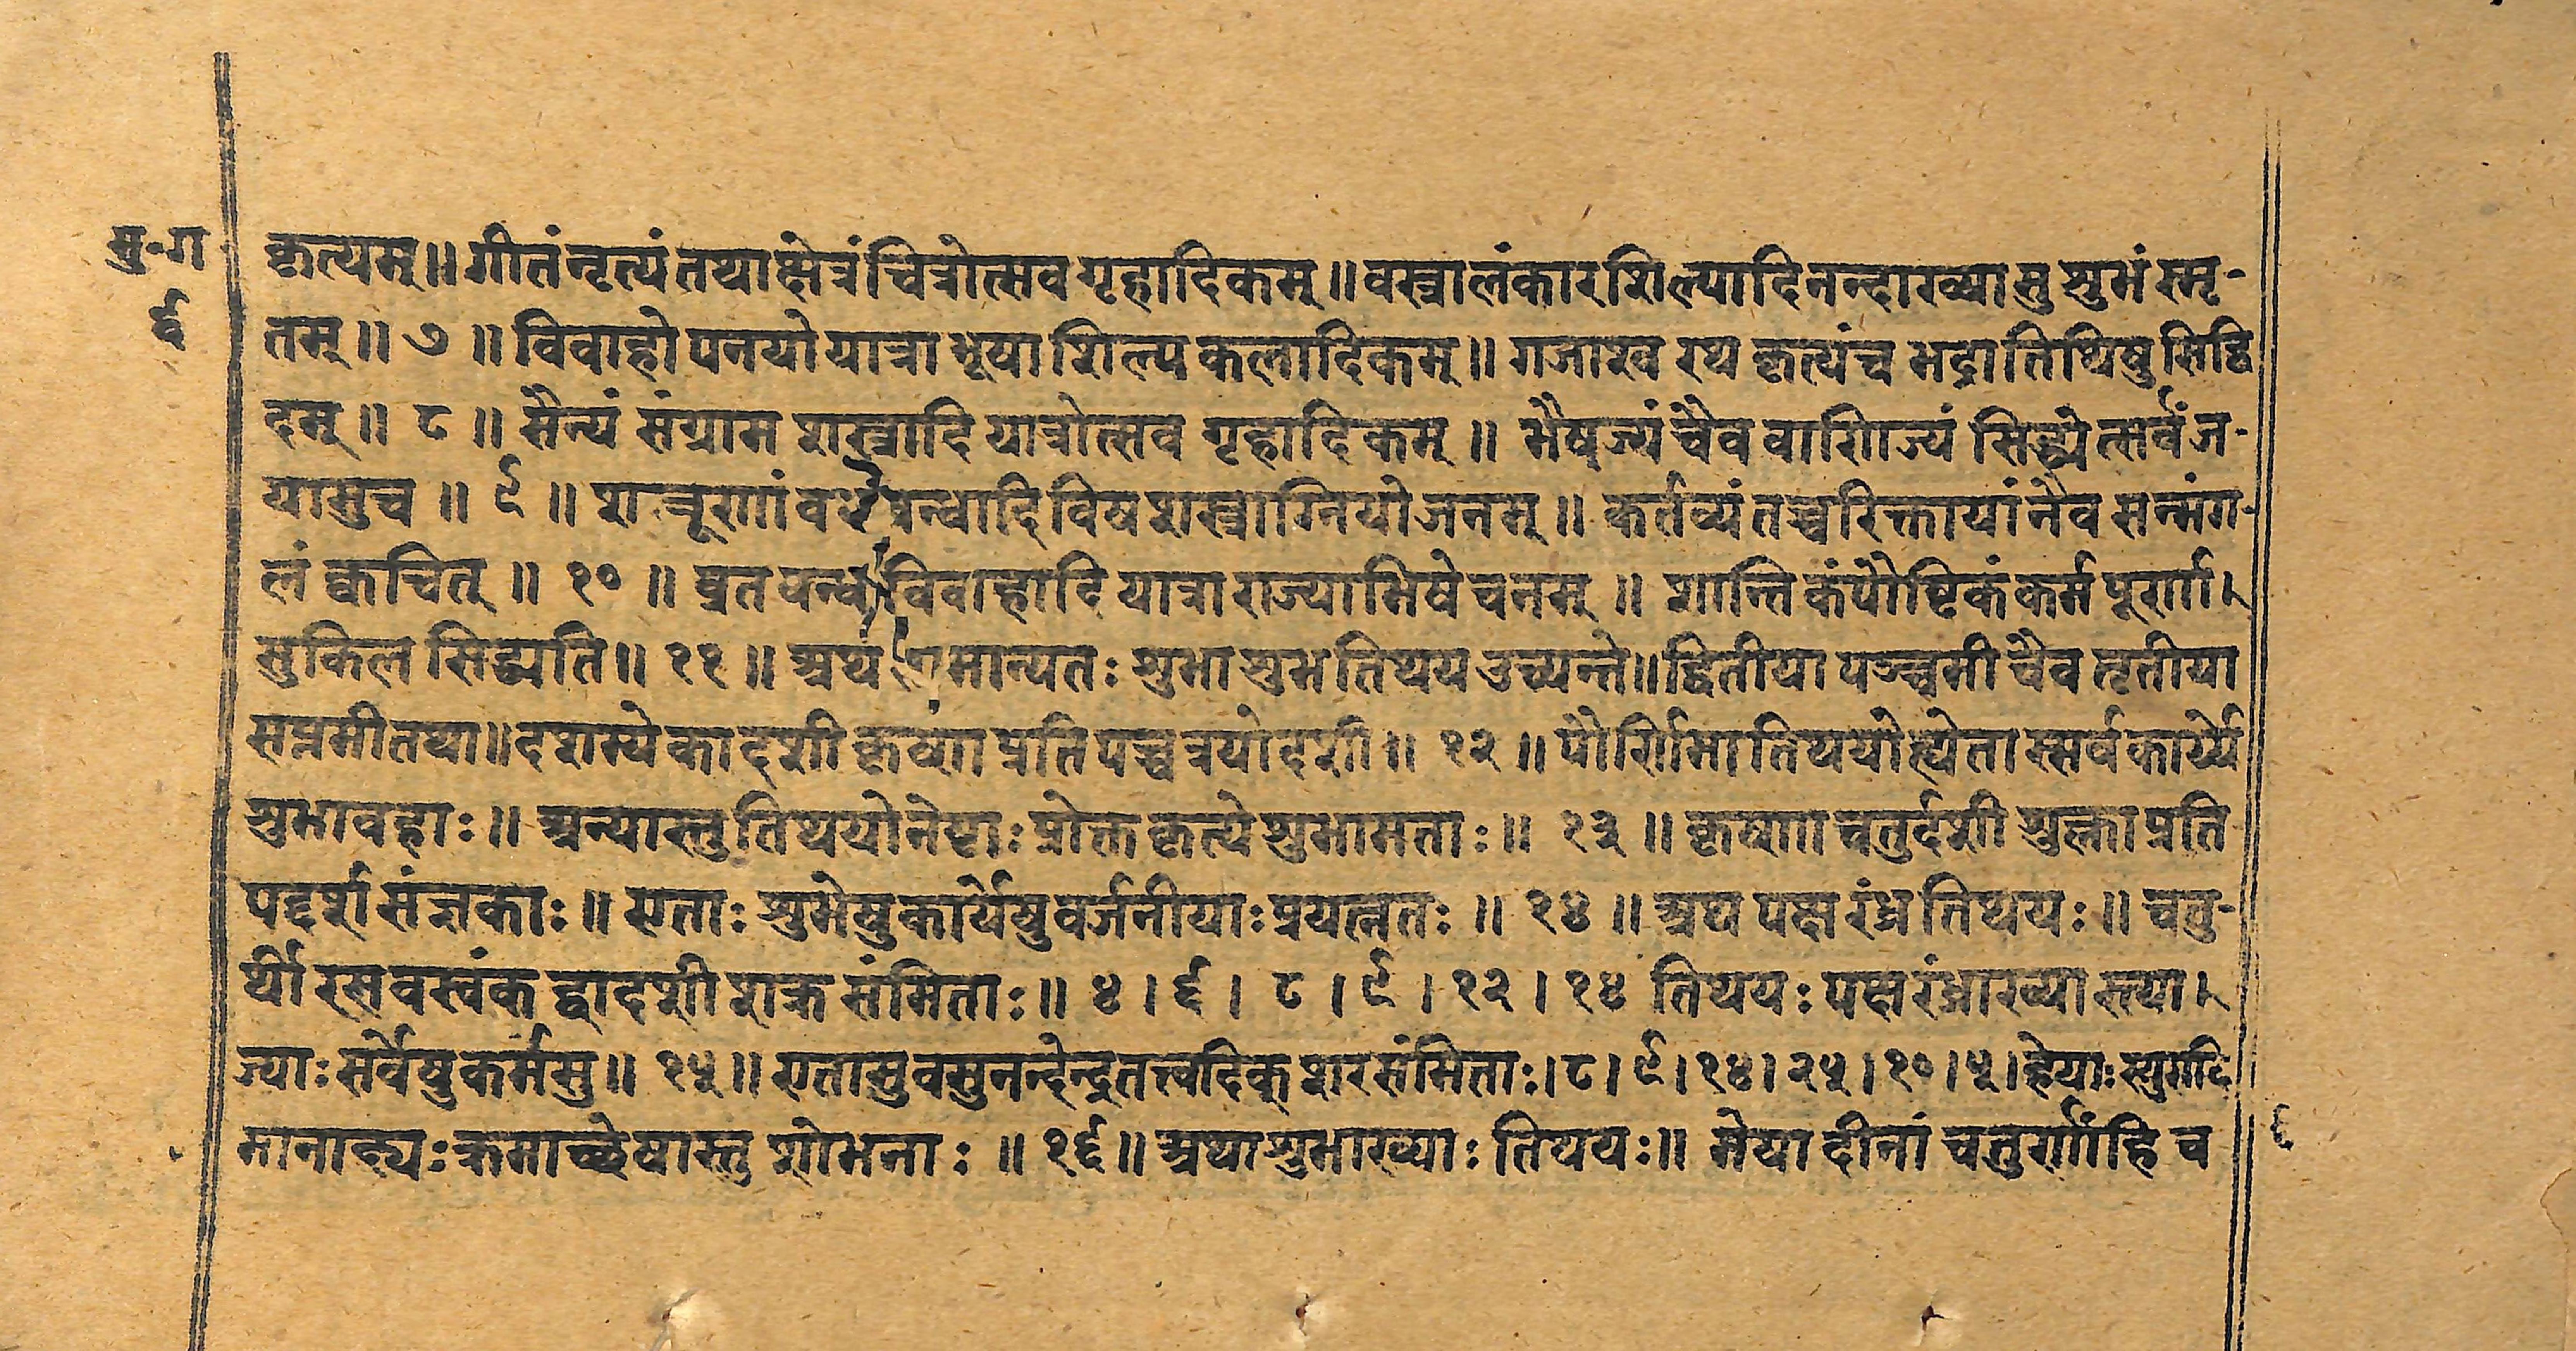 मु॰ग
६
कृत्यम्॥ गीतं नृत्यं तथा क्षेत्रं चित्रोत्सव गृहादिकम्॥ वस्त्रालंकार शिल्पादि नन्दाख्यासु शुभं स्मृ-
तम्॥ ७ ॥ विवाहोपनयो यात्रा भूषा शिल्प कलादिकम्॥ गजाश्व रथ कृत्यं च भद्रा तिथिषु सिद्धि
दम्॥ ८ ॥ सैन्यं संग्राम शस्त्रादि यात्रोत्सव गृहादिकम्॥ भैषज्यं चैव वाणिज्यं सिद्ध्येत्सर्वं ज-
यासु च ॥ ९ ॥ शत्रूणां वध बन्धादि विष शस्त्राग्नियोजनम्॥ कर्तव्यं तच्च रिक्तायां नैव सन्मंग-
लं क्वचित् ॥ १० ॥ व्रतबन्ध विवाहादि यात्रा राज्याभिषेचनम् ॥ शान्तिकं पौष्टिकं कर्म पूर्णा।
सु किल सिद्ध्यति॥ ११ ॥ अथ मान्यतः शुभाशुभ तिथय उच्यन्ते॥ द्वितीया पञ्चमी चैव तृतीया
सप्तमी तथा॥ दशम्येकादशी कृष्णा प्रतिपच्च त्रयोदशी॥ १२ ॥ पौर्णिमा तिथयोह्येतास्सर्वकार्य्ये
शुभावहाः॥ अन्यास्तु तिथयो नेष्टाः प्रोक्त कृत्ये शुभा मताः॥ १३ ॥ कृष्णा चतुर्दशी शुक्ला प्रति
पद्दर्श संज्ञकाः॥ एताः शुभेषु कार्येषु वर्जनीयाः प्रयत्नतः ॥ १४ ॥ अथ पक्षरंध्र तिथयः॥ चतु-
र्थी रस वस्वंक द्वादशी शक्र संमिताः॥ ४। ६। ८। ९। १२। १४ तिथयः पक्षरंध्राख्यास्त्या।
ज्याः सर्वेषु कर्मसु॥ १५॥ एतासु वसुनन्देन्द्रतत्त्वदिक् शरसंमिताः। ८। ९। १४। २५। १०। ५। हेयाः स्युरादि
मानाड्यः क्रमाच्छेषास्तु शोभनाः ॥ १६॥ अथाशुभाख्याः तिथयः॥ मेषादीनां चतुर्णां हि च
६